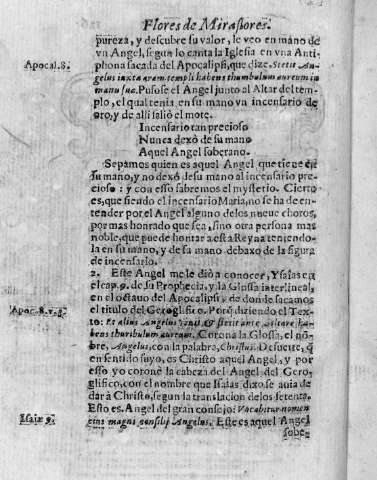 Flores de Miraflores.
pureza, y descubre su valor, le veo en mano de
vn Angel, segun lo canta la Iglesia en vna Anti
phona sacada del Apocalipsi, que dize. Stetit An-
Apocal. 8.
gelus iuxta aram templi habens thuribulum aureum in
manu sua. Pusose el Angel junto al Altar del tem-
plo, el qual tenia en su mano vn incensario de
oro, y de alli saliò el mote.
Incensario tan precioso
Nunca dexò de su mano
Aquel Angel soberano.
Sepamos quien es aquel Angel que tiene en
su mano, y no dexò de su mano al incensario pre-
cioso: y con esso sabremos el mysterio. Cierto
es, que siendo el incensario Maria, no se ha de en-
tender por el Angel alguno de los nueue choros,
por mas honrado que sea, sino otra persona mas
noble, que puede honrar a esta Reyna teniendo-
la en su mano, y de su mano debaxo de la figura
de incensario.
2. Este Angel me le diò a conocer, Ysaias en
el cap. 9. de su Prophecia, y la Glossa interlineal,
en el octauo del Apocalipsi, de donde sacamos
el titulo del Geroglifico. Porq̃ diziendo el Tex-
Apoc. 8. v. 3.
to: Et alius Angelus venit, & stetit ante Altare ha-
bens thuribulum aureum. Corona la Glossa, el nõ-
bre, Angelus, con la palabra, Christus. De suerte, q̃
en sentido suyo, es Christo aquel Angel, y por
esso yo coronè la cabeza del Angel del Gero-
glifico, con el nombre que Isaias dixo se auia de
dar à Christo, segun la translacion de los setenta.
Esto es. Angel del gran consejo: Vocabitur nomen
Isaiæ 9.
eius magni consilij Angelus. Este es aquel Angel
sobe-